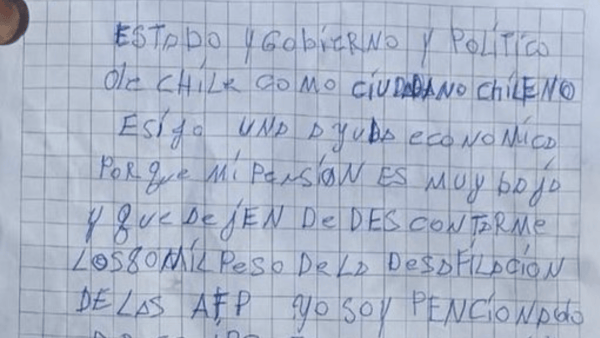 ESTADO Y GObiERNO Y POLÍTICO
de CHILE COMO CIUDADANO CHILENO
ESIJO UNA AYUDA ECONOMICA
PORque MI PENSION ES MUY bAJO
Y QUE DEJEN DE DESCONTARME
LOS 80 MIL PESO DE LA DESAFILACION
DE LAS AFP YO SOY PENCIONADO